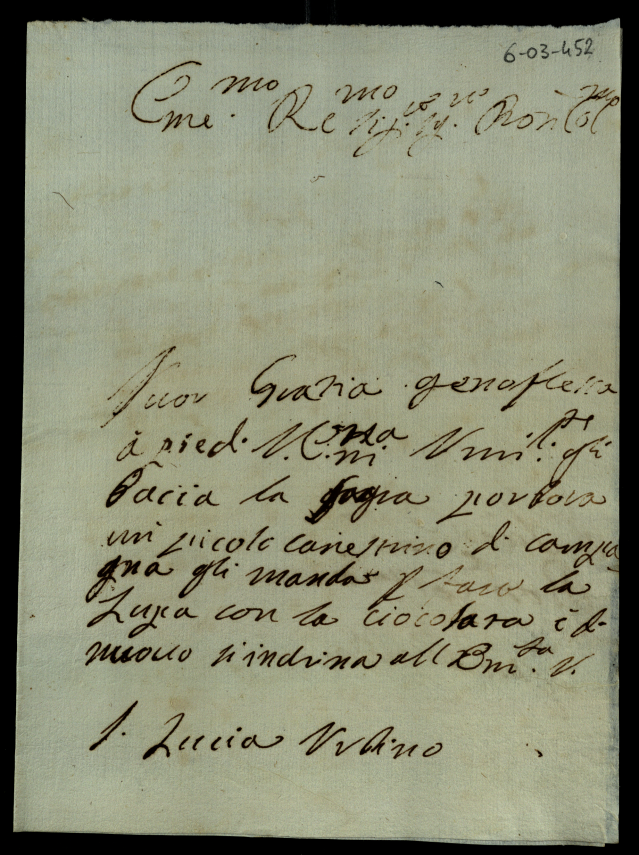 6-03-452
Eme.mo Re.mo Sig.re Sig.re Pron Col.mo
Suor Gratia genoflessa
à piedi V. Em.nza Umil.te gli
Bacia la sagra porpora
un picolo canestrino di campa
gna gli manda p fare la
Zupa con la ciocolata è di
nuovo s'inchina all Em.za V.
S. Lucia Urbino